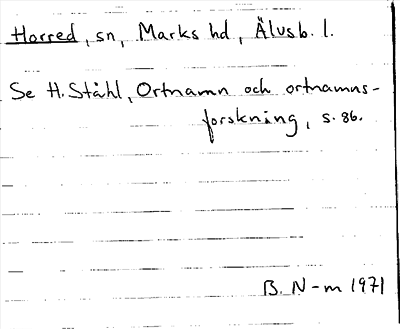 Horred, sn, Marks hd, Älvsb. l.
Se H. Ståhl, Ortnamn och ortnamns-
forskning, s. 86.
B. N-m 1971